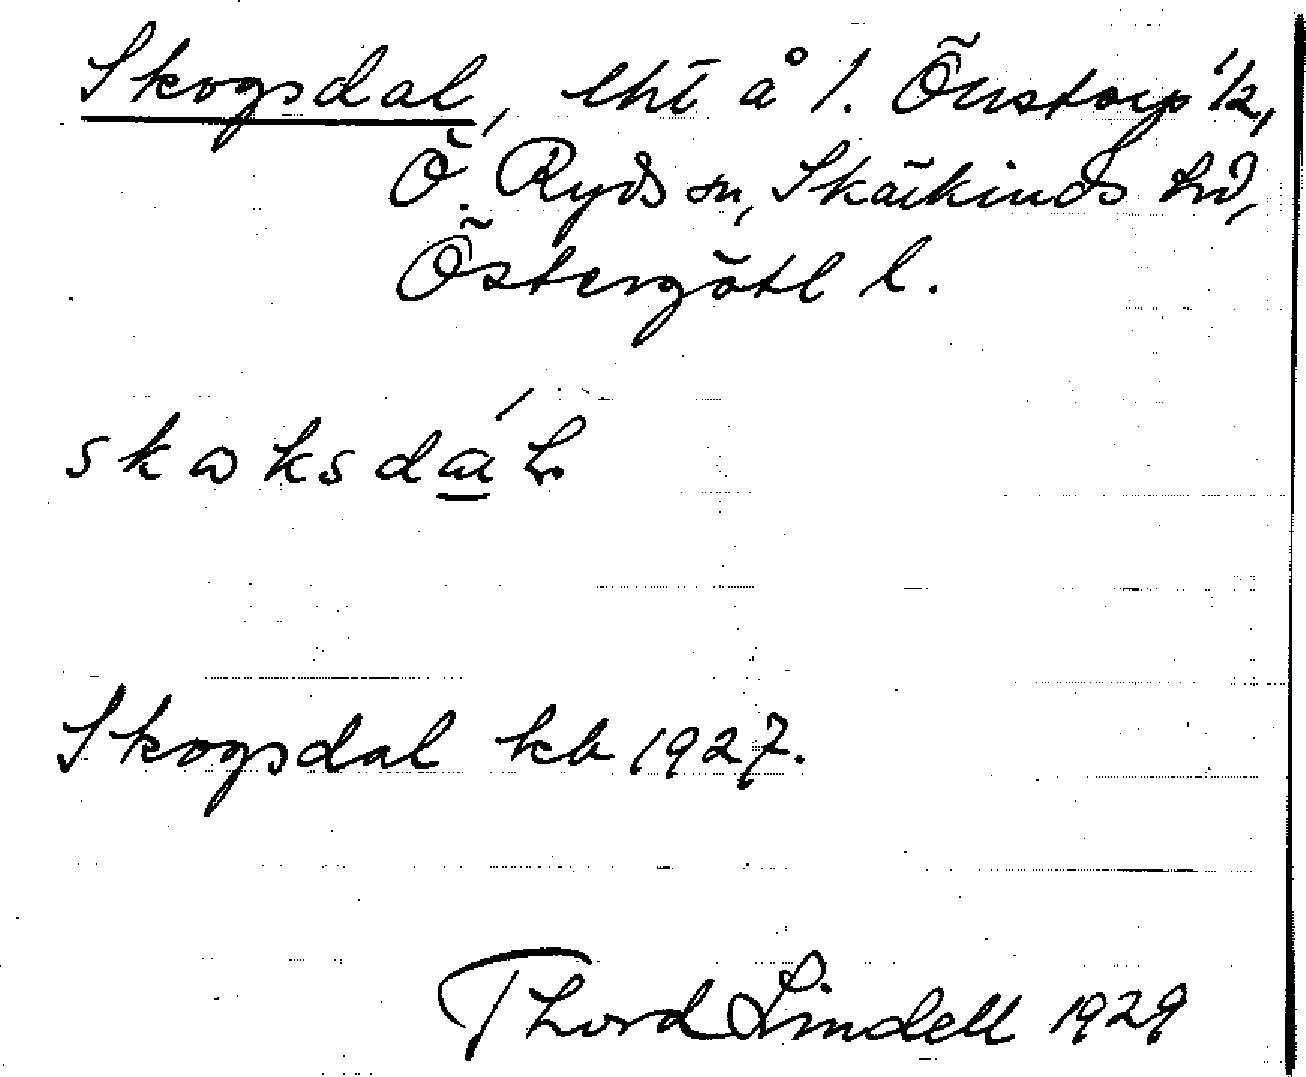 Skogsdal, lht å 1. Önstorp 1/2,
Ö. Ryds sn, Skärkinds hd,
Östergötl l.
skɷksdá̲ɫ
Skogsdal kb 1927.
Thord Lindell 1929